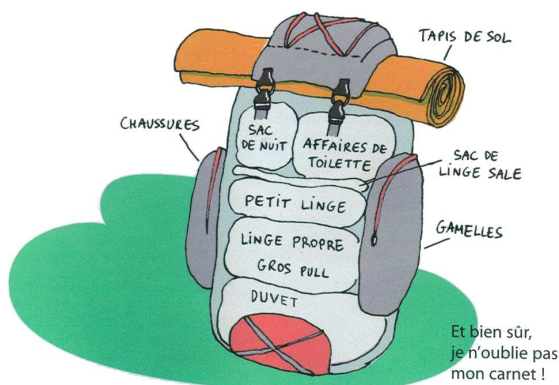 TAPIS DE SOL
CHAUSSURES
SAC
DE NUIT
AFFAIRES DE
TOILETTE
SAC DE
LINGE SALE
PETIT LINGE
GAMELLES
LINGE PROPRE
GROS PULL
DUVET
Et bien sûr,
je n'oublie pas
mon carnet !